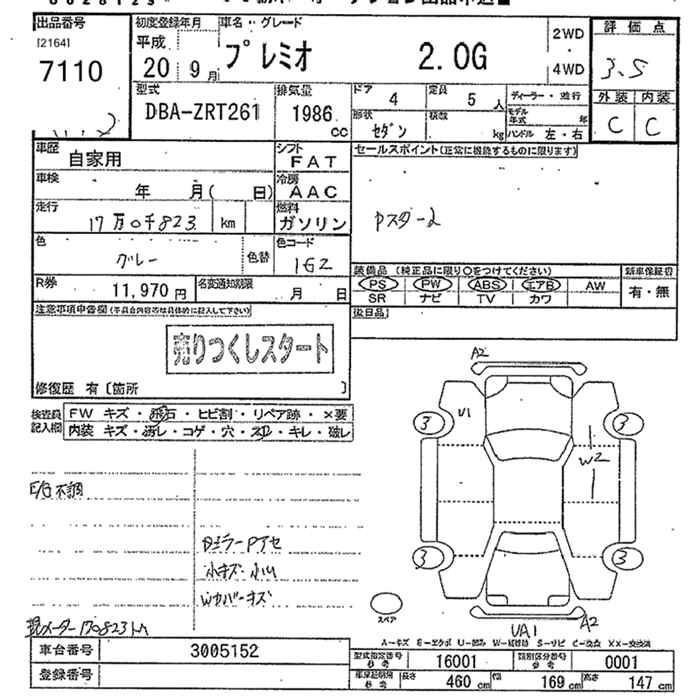 出品番号
[2164]
7110
初度登録年月
平成
20 9月
車名・グレード
プレミオ 2.0G
2WD
4WD
評価点
3.5
外装 内装
C C
型式
DBA-ZRT261
排気量
1986
cc
ドア
4
定員
5 人
形状
セダン
積載
kg
ディーラー・並行
モデル年式 年
ハンドル 左・右
車歴
自家用
シフト
FAT
車検
年 月( 日)
冷房
AAC
走行
17万0千823 km
燃料
ガソリン
色
グレー
色替
色コード
1G2
R券
11,970 円
名変通知期限
月 日
セールスポイント(正常に機能するものに限ります)
Pスタート
装備品 (純正品に限り○をつけてください)
PS PW ABS エアB AW
SR ナビ TV カワ
新車保証書
有・無
後日品
注意事項申告欄(不具合内容等は具体的に記入して下さい)
売りつくしスタート
修復歴 有〔箇所 〕
検査員記入欄
FW キズ・飛石・ヒビ割・リペア跡・×要
内装 キズ・汚レ・コゲ・穴・スレ・キレ・破レ
E/G不調
DミラーPアセ
小キズ・小凹
Wカバーキズ
現メーター170823km
A2
U1
3
3
W2
3
3
スペア
UA1
A2
A-キズ E-エクボ U-凹み W-補修跡 S-サビ C-腐食 XX-交換済
車台番号
3005152
登録番号
型式指定番号
参考
16001
類別区分番号
参考
0001
車庫証明用
参考
長さ 460 cm
幅 169 cm
高さ 147 cm